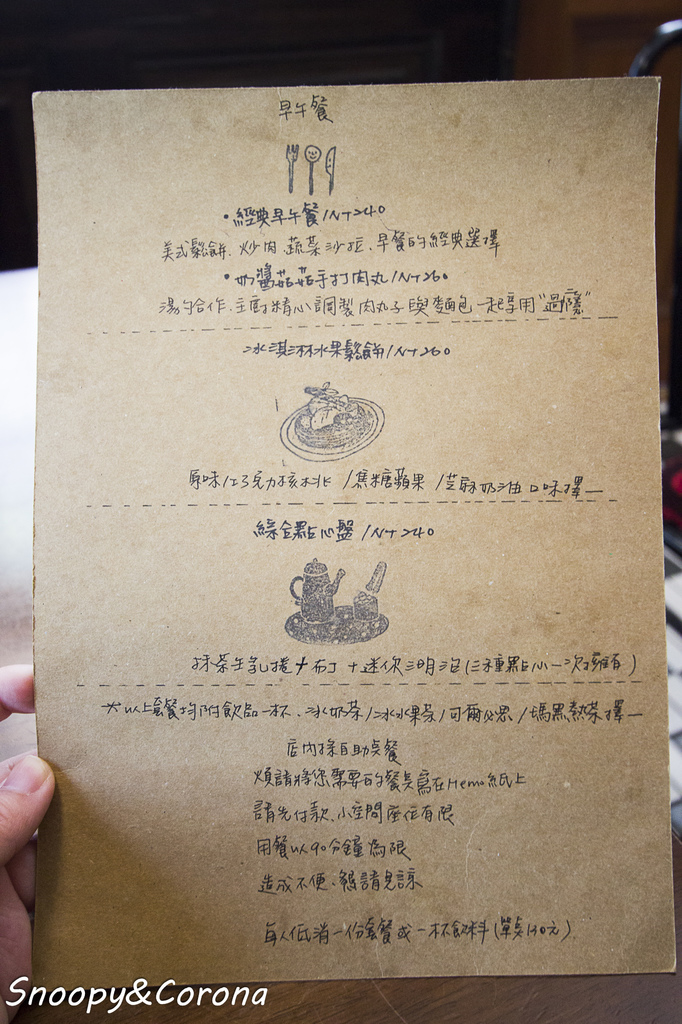 早午餐
•經典早午餐/NT240
美式鬆餅、炒肉、蔬菜沙拉、早餐的經典選擇
•奶醬菇菇手打肉丸/NT260
湯勺合作、主廚精心調製肉丸子與麵包一起享用"過癮"
冰淇淋水果鬆餅/NT260
原味/巧克力核桃/焦糖蘋果/芝麻奶油 口味擇一
綜合點心盤/NT240
抹茶生乳捲+布丁+迷你三明治(三種點心一次擁有)
以上套餐均附飲品一杯、冰奶茶/冰水果茶/可爾必思/瑪黑熱茶擇一
店內採自助點餐
煩請將您需要的餐點寫在Memo紙上
請先付款、小空間座位有限
用餐以90分鐘為限
造成不便、敬請見諒
每人低消一份套餐或一杯飲料(單點130元)
Snoopy&Corona